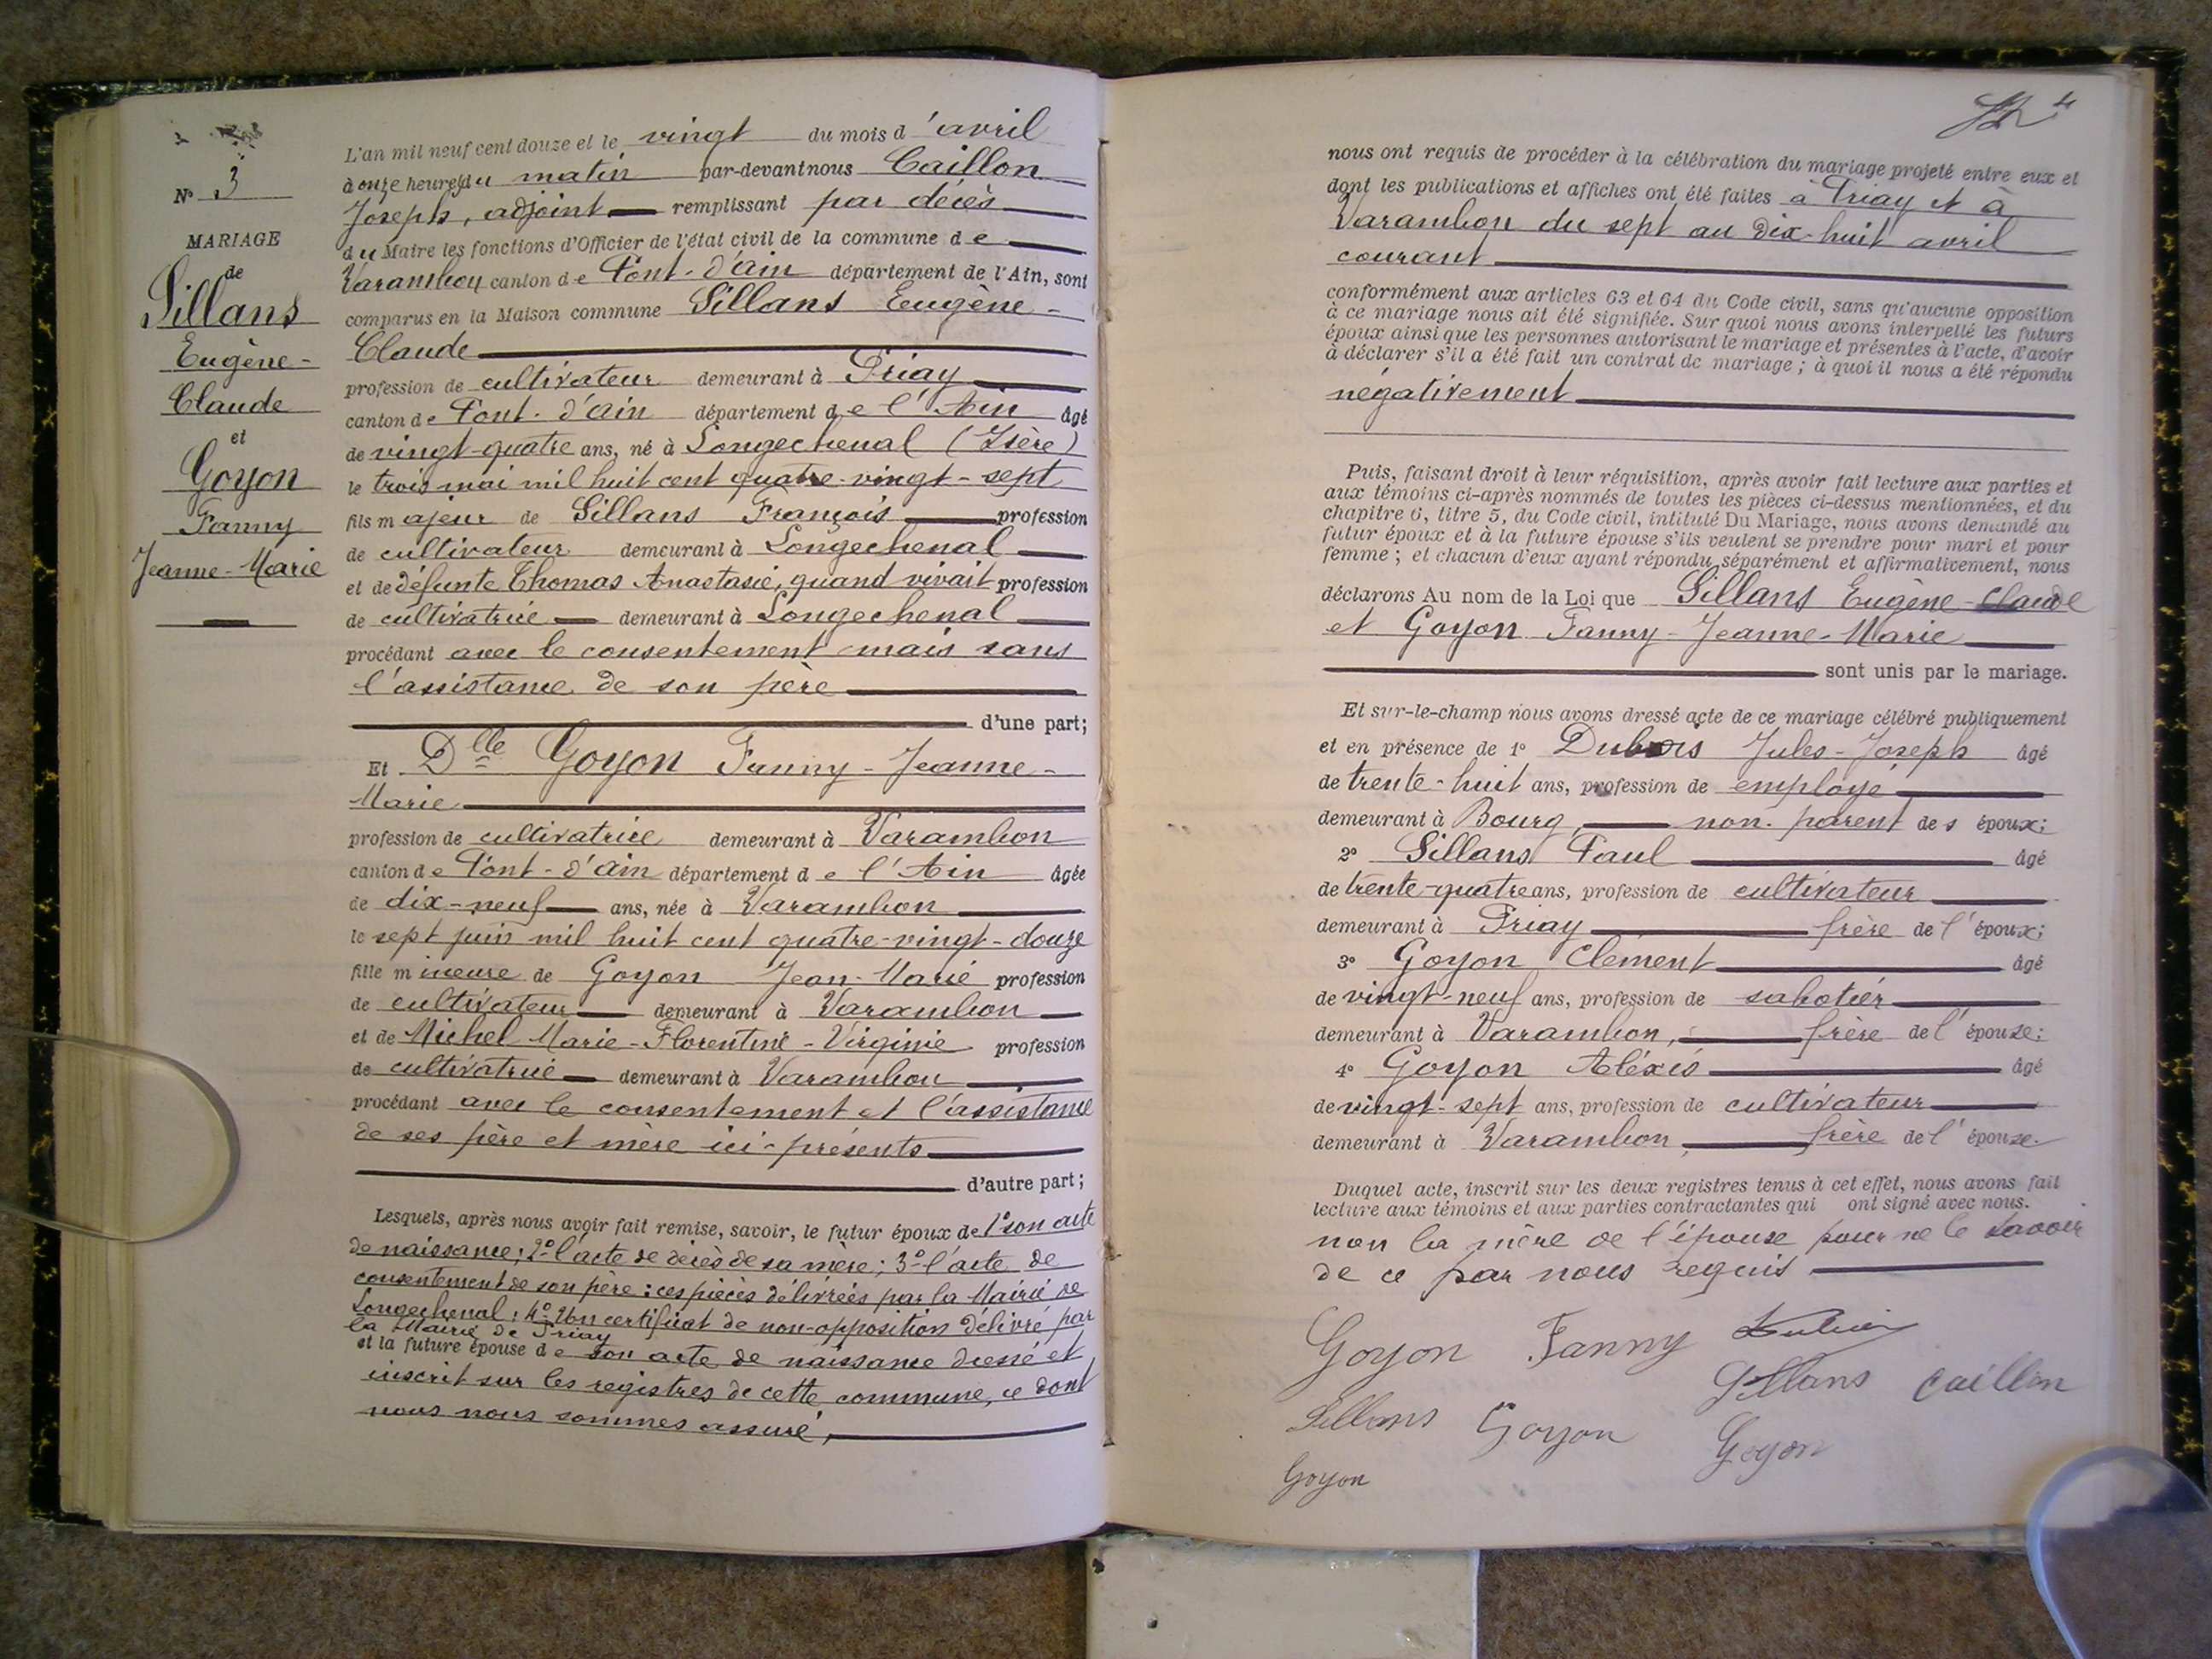 N° 3
MARIAGE
de
Sillans
Eugène-
Claude
et
Goyon
Fanny
Jeanne-Marie
L'an mil neuf cent douze et le vingt du mois d'avril
à onze heures du matin par-devant nous Caillon
Joseph, adjoint remplissant par décès
du Maire les fonctions d'Officier de l'état civil de la commune de
Varambon canton de Pont-d'Ain département de l'Ain, sont
comparus en la Maison commune Sillans Eugène-
Claude
profession de cultivateur demeurant à Priay
canton de Pont-d'Ain département de l'Ain âgé
de vingt-quatre ans, né à Longechenal (Isère)
le trois mai mil huit cent quatre-vingt-sept
fils majeur de Sillans François profession
de cultivateur demeurant à Longechenal
et de défunte Thomas Anastasie, quand vivait profession
de cultivatrice demeurant à Longechenal
procédant avec le consentement mais sans
l'assistance de son père
d'une part;
Et Dlle Goyon Fanny-Jeanne-
Marie
profession de cultivatrice demeurant à Varambon
canton de Pont-d'Ain département de l'Ain âgée
de dix-neuf ans, née à Varambon
le sept juin mil huit cent quatre-vingt-douze
fille mineure de Goyon Jean-Marie profession
de cultivateur demeurant à Varambon
et de Michel Marie-Florentine-Virginie profession
de cultivatrice demeurant à Varambon
procédant avec le consentement et l'assistance
de ses père et mère ici-présents
d'autre part;
Lesquels, après nous avoir fait remise, savoir, le futur époux de 1° son acte
de naissance; 2° l'acte de décès de sa mère; 3° l'acte de
consentement de son père: ces pièces délivrées par la Mairie de
Longechenal; 4° Un certificat de non-opposition délivré par
la Mairie de Priay
et la future épouse de son acte de naissance dressé et
inscrit sur les registres de cette commune, ce dont
nous nous sommes assuré,
4
nous ont requis de procéder à la célébration du mariage projeté entre eux et
dont les publications et affiches ont été faites à Priay et à
Varambon du sept au dix-huit avril
courant
conformément aux articles 63 et 64 du Code civil, sans qu'aucune opposition
à ce mariage nous ait été signifiée. Sur quoi nous avons interpellé les futurs
époux ainsi que les personnes autorisant le mariage et présentes à l'acte, d'avoir
à déclarer s'il a été fait un contrat de mariage; à quoi il nous a été répondu
négativement
Puis, faisant droit à leur réquisition, après avoir fait lecture aux parties et
aux témoins ci-après nommés de toutes les pièces ci-dessus mentionnées, et du
chapitre 6, titre 5, du Code civil, intitulé Du Mariage, nous avons demandé au
futur époux et à la future épouse s'ils veulent se prendre pour mari et pour
femme; et chacun d'eux ayant répondu séparément et affirmativement, nous
déclarons Au nom de la Loi que Sillans Eugène-Claude
et Goyon Fanny-Jeanne-Marie
sont unis par le mariage.
Et sur-le-champ nous avons dressé acte de ce mariage célébré publiquement
et en présence de 1° Dubois Jules-Joseph âgé
de trente-huit ans, profession de employé
demeurant à Bourg, non-parent des époux;
2° Sillans Paul âgé
de trente-quatre ans, profession de cultivateur
demeurant à Priay frère de l'époux;
3° Goyon Clément âgé
de vingt-neuf ans, profession de sabotier
demeurant à Varambon, frère de l'épouse;
4° Goyon Aléxis âgé
de vingt-sept ans, profession de cultivateur
demeurant à Varambon, frère de l'épouse.
Duquel acte, inscrit sur les deux registres tenus à cet effet, nous avons fait
lecture aux témoins et aux parties contractantes qui ont signé avec nous.
non la mère de l'épouse pour ne le savoir
de ce par nous requis
Goyon Fanny Dubois
Sillans Caillon
Sillans Goyon Goyon
Goyon